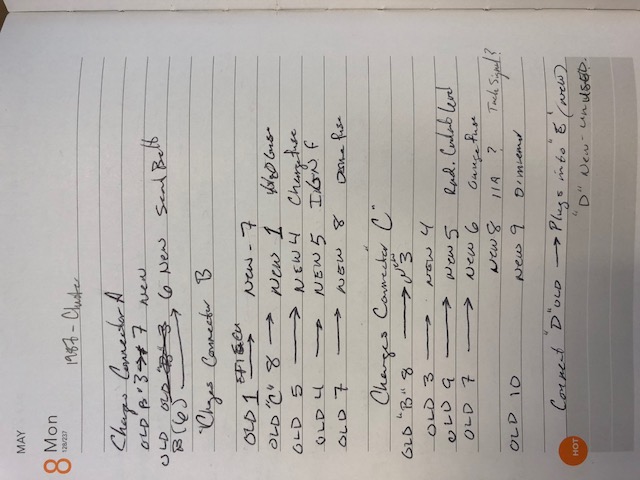 MAY
8 Mon
128/237
1987 - Cluster
Changes Connector A
OLD B "3 → 7 New
OLD B(6) → 6 New Seat Belt
"Changes Connector B
OLD 1 → New - 7
OLD "C" 8 → NEW 1
OLD 5 → NEW 4 Charge fuse
OLD 4 → NEW 5 IGN F
OLD 7 → NEW 8 Dome fuse
Changes Connector "C"
OLD "B" 8 → New 3
OLD 3 → NEW 4
OLD 9 → New 5 Rad. Coolant level
OLD 7 → NEW 6 Gauge fuse
NEW 8 11A ? Tach Signal?
OLD 10 NEW 9 Dimmer
Connect "D" OLD → Plugs into "E" (new)
"D" New - UNUSED.
HOT